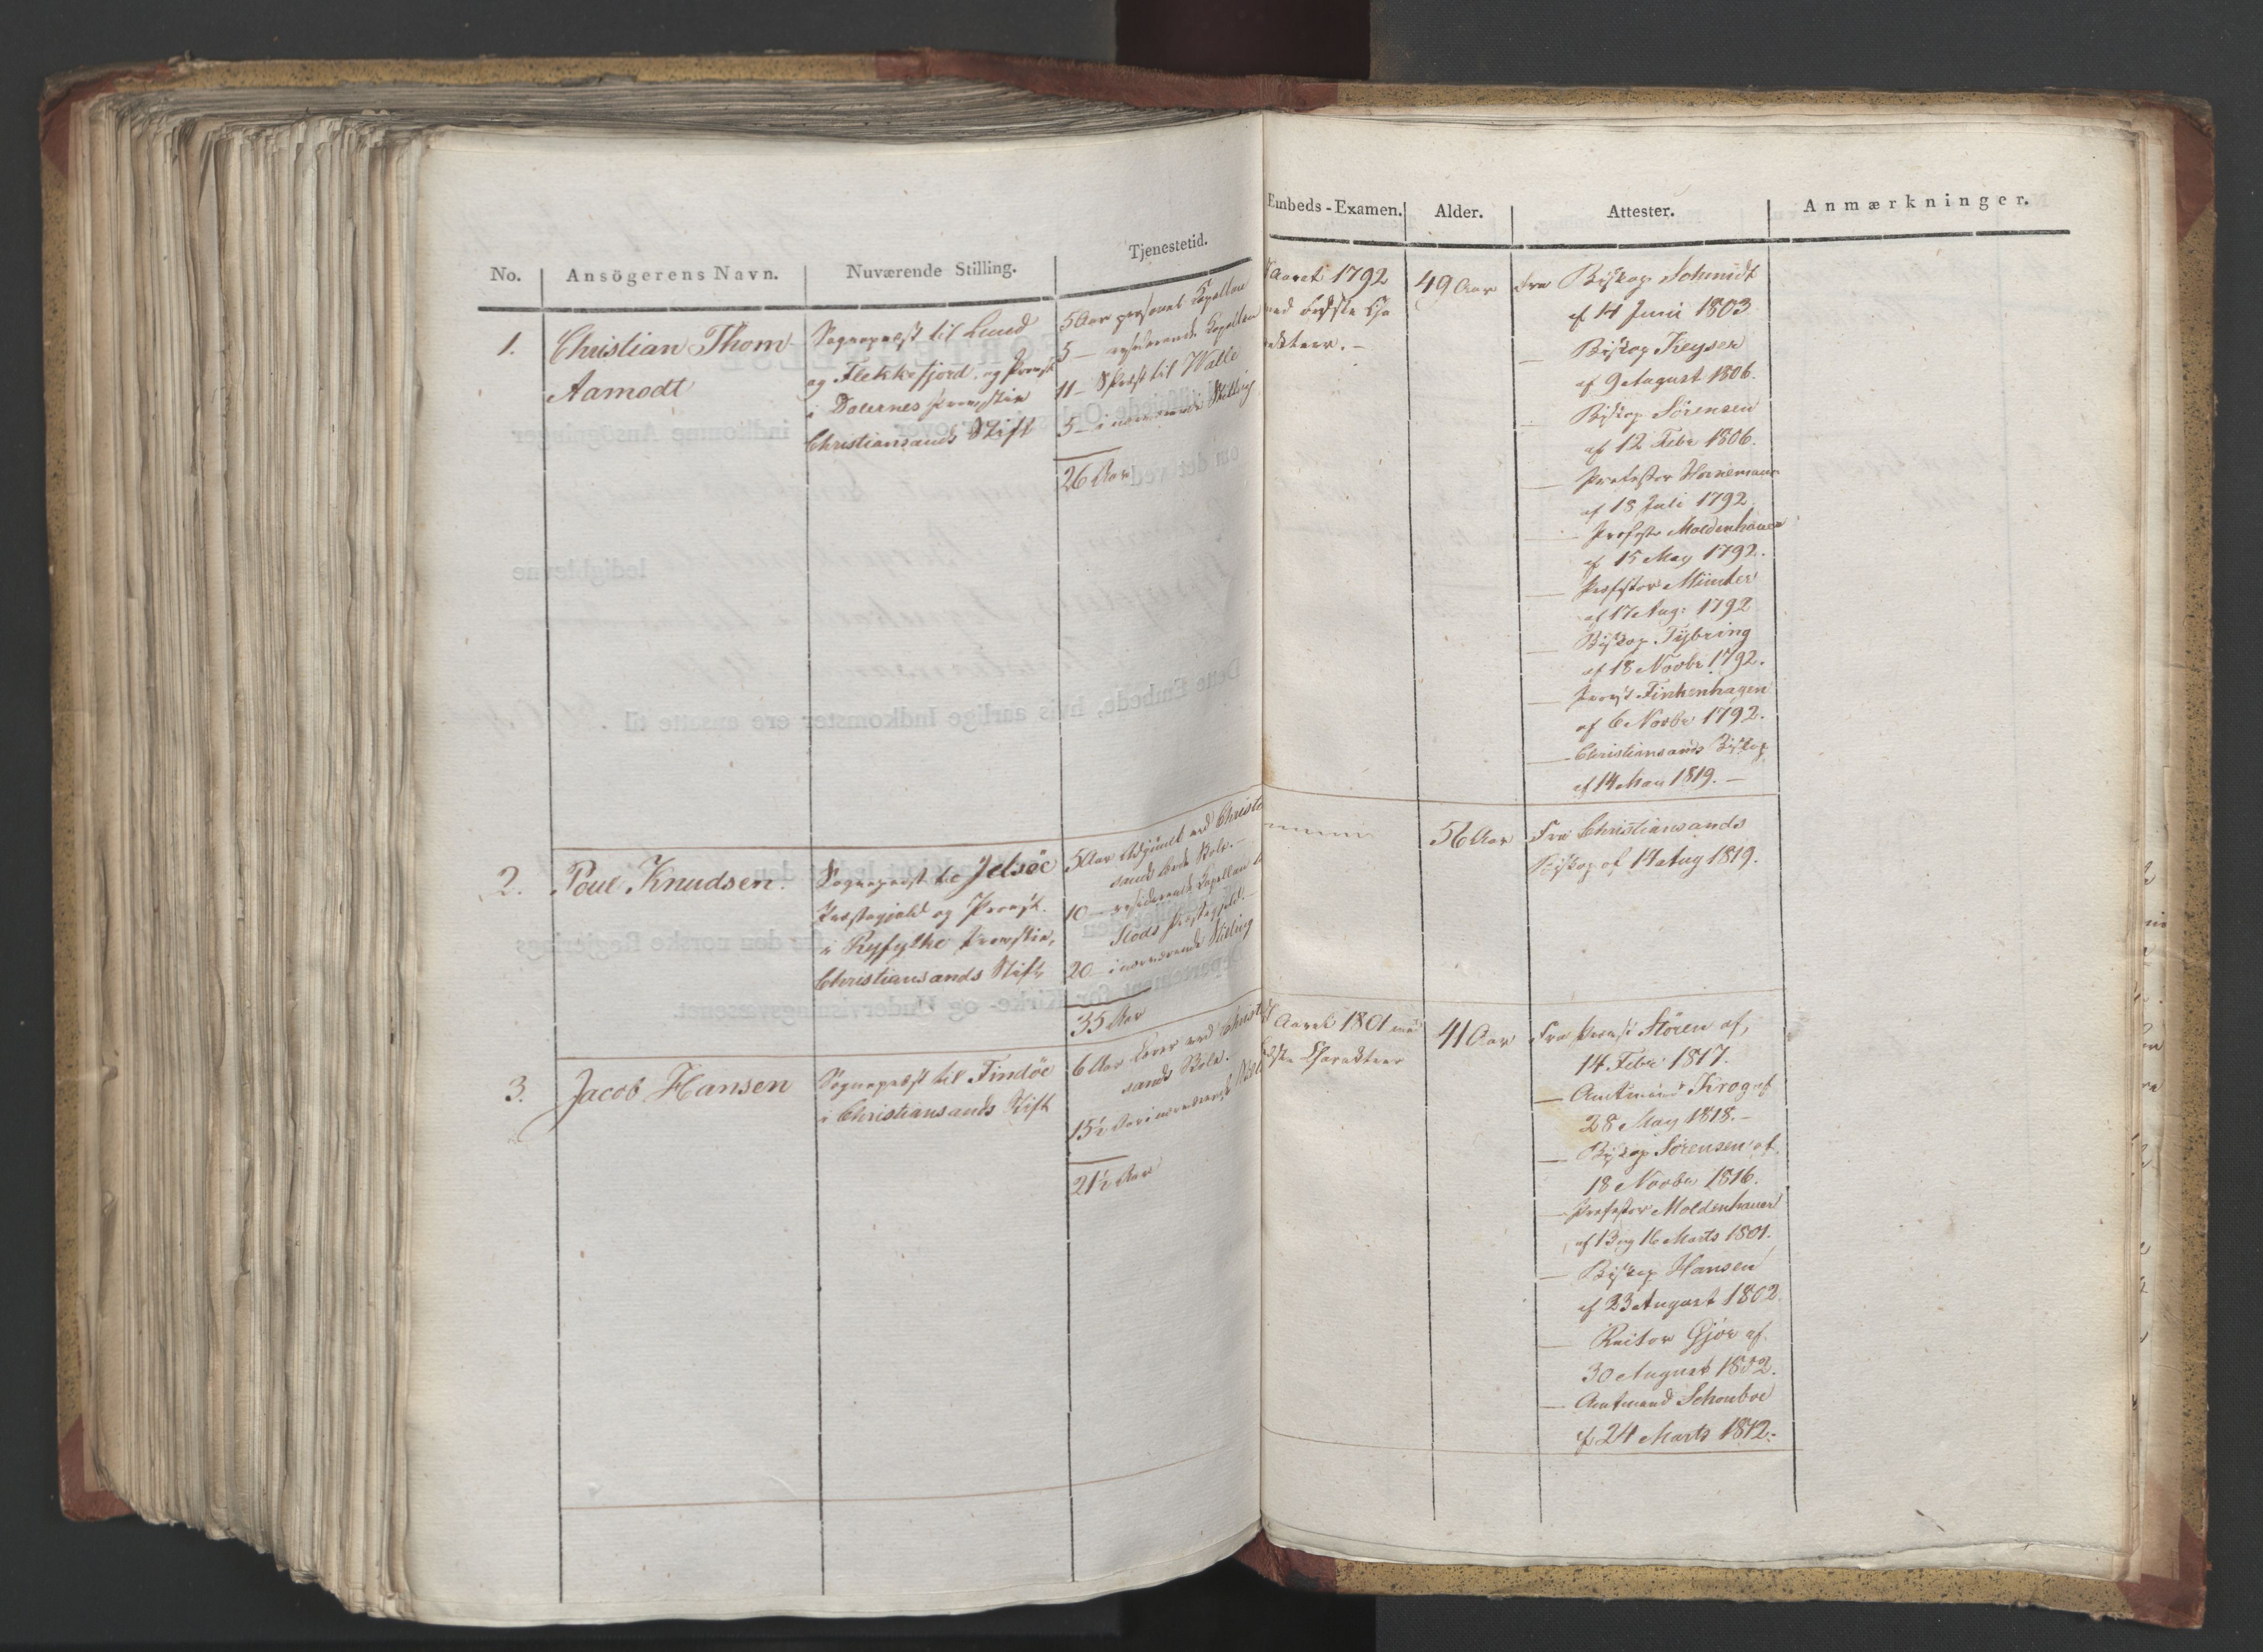 No.
Ansögerens Navn.
Nuværende Stilling.
Tjenestetid.
1.
Christian Thom
Aamodt
Sognepræst til Lund
og Flekkefjord, og Provst
i Dalernes Provstie
Christiansands Stift
5 Aar personel Kapellan
5 — residerende Kapellan
11 — Spræst til Walle
5 — i nærværende Stilling
26 Aar
2.
Poul Knudsen.
Sognepræst til Jelsöe
Præstegjeld og Provst
i Ryfylke Provstie,
Christiansands Stift,
5 Aar Adjunct ved Christian
sands Skole. —
10 — residerende Kapellan
Præstegjeld. —
20 — i nærværende Stilling
35 Aar
3.
Jacob Hansen
Sognepræst til Findöe
i Christiansands Stift
6 Aar Lærer ved Christian
sands Skole.
15½ Aar i nærværende
21½ Aar
Embeds-Examen.
Alder.
Attester.
Anmærkninger.
Aaret 1792
med bedste Cha
rakteer. —
49 Aar
Fra Biskop Schmidt
af 14 Juni 1803
— Biskop Keyser
af 9 August 1806.
— Biskop Sörensen
af 12 Febr 1806.
— Professor Hornemann
af 18 Juli 1792
— Profess. Moldenhauer
af 15 May 1792.
— Professor Münter
af 17 Aug: 1792
— Biskop Tybring
af 18 Novbr 1792.
— Provst Finkenhagen
af 6 Novbr 1792.
— Christiansands Biskop
af 14 1819. —
56 Aar
Fra Christiansands
Biskop af 14 Aug 1819.
Aaret 1801 med
bedste Charakteer
41 Aar
Fra Provst Stören af,
14 Febr 1817.
— Amtmand Krog af
28 May 1818. —
— Biskop Sörensen af
18 Novbr 1816.
— Professor Moldenhauer
af 13 og 16 Marts 1801.
— Biskop Hansen
af 23 August 1802
— Rector Gjör af
30 August 1802.
— Amtmand Schouboe
af 24 Marts 1812.